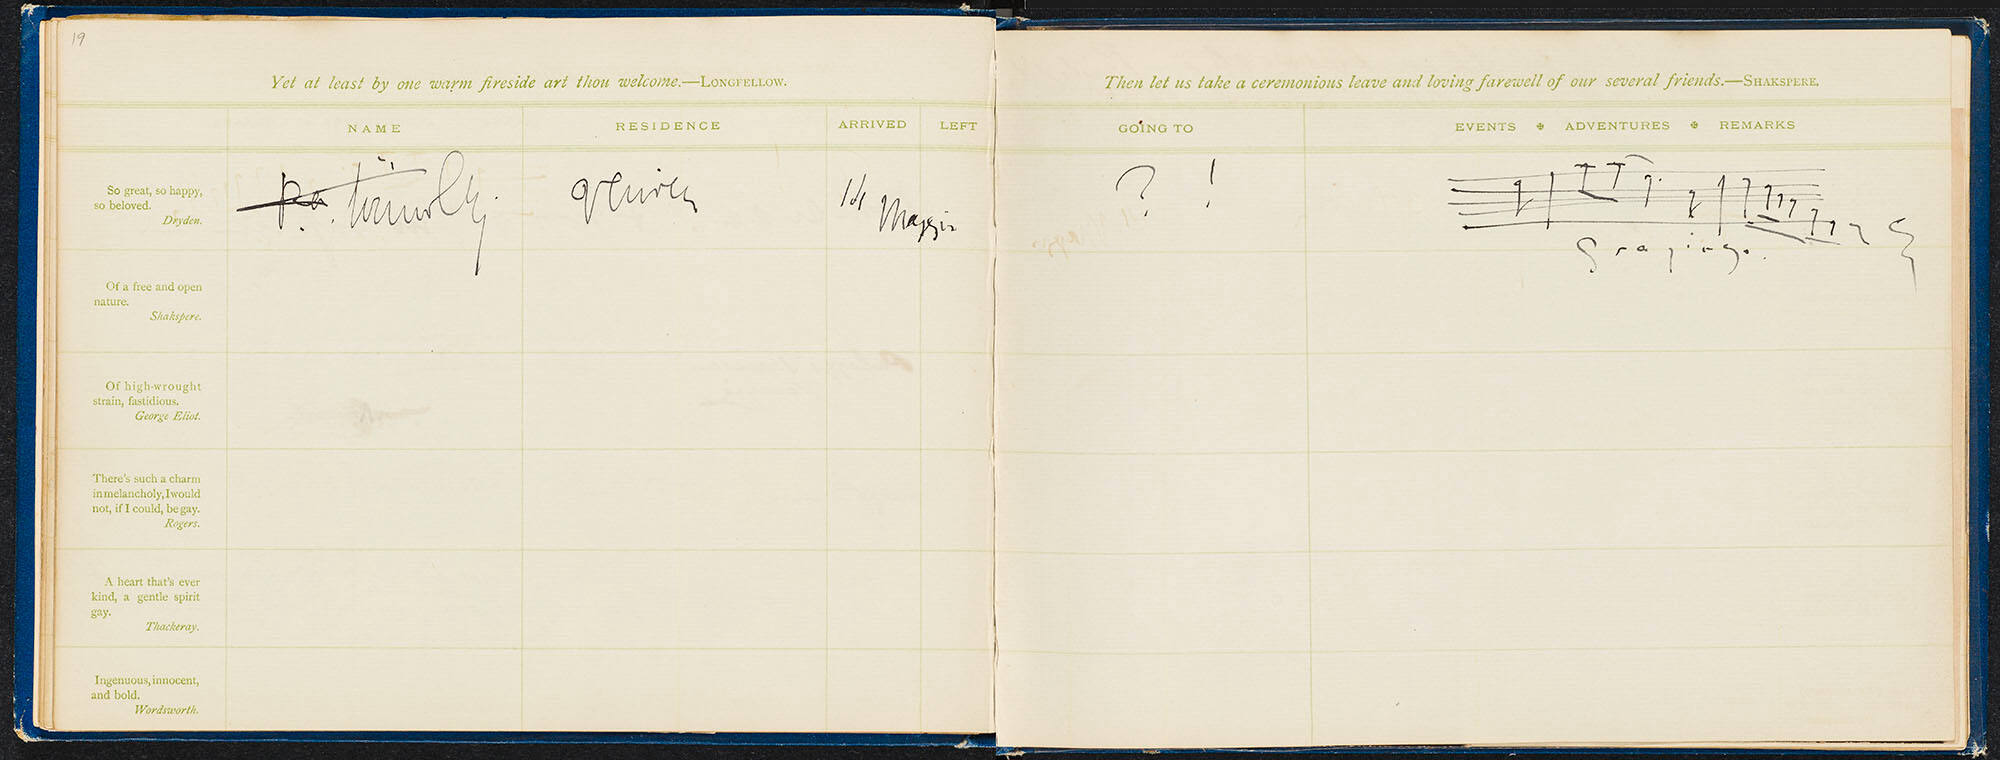 19
Yet at least by one warm fireside art thou welcome.—LONGFELLOW.
NAME RESIDENCE ARRIVED LEFT
So great, so happy,
so beloved.
Dryden.
Maggio
Of a free and open
nature.
Shakspere.
Of high-wrought
strain, fastidious.
George Eliot.
There's such a charm
in melancholy, I would
not, if I could, be gay.
Rogers.
A heart that's ever
kind, a gentle spirit
gay.
Thackeray.
Ingenuous, innocent,
and bold.
Wordsworth.
Then let us take a ceremonious leave and loving farewell of our several friends.—SHAKSPERE.
GOING TO EVENTS ✠ ADVENTURES ✠ REMARKS
? !